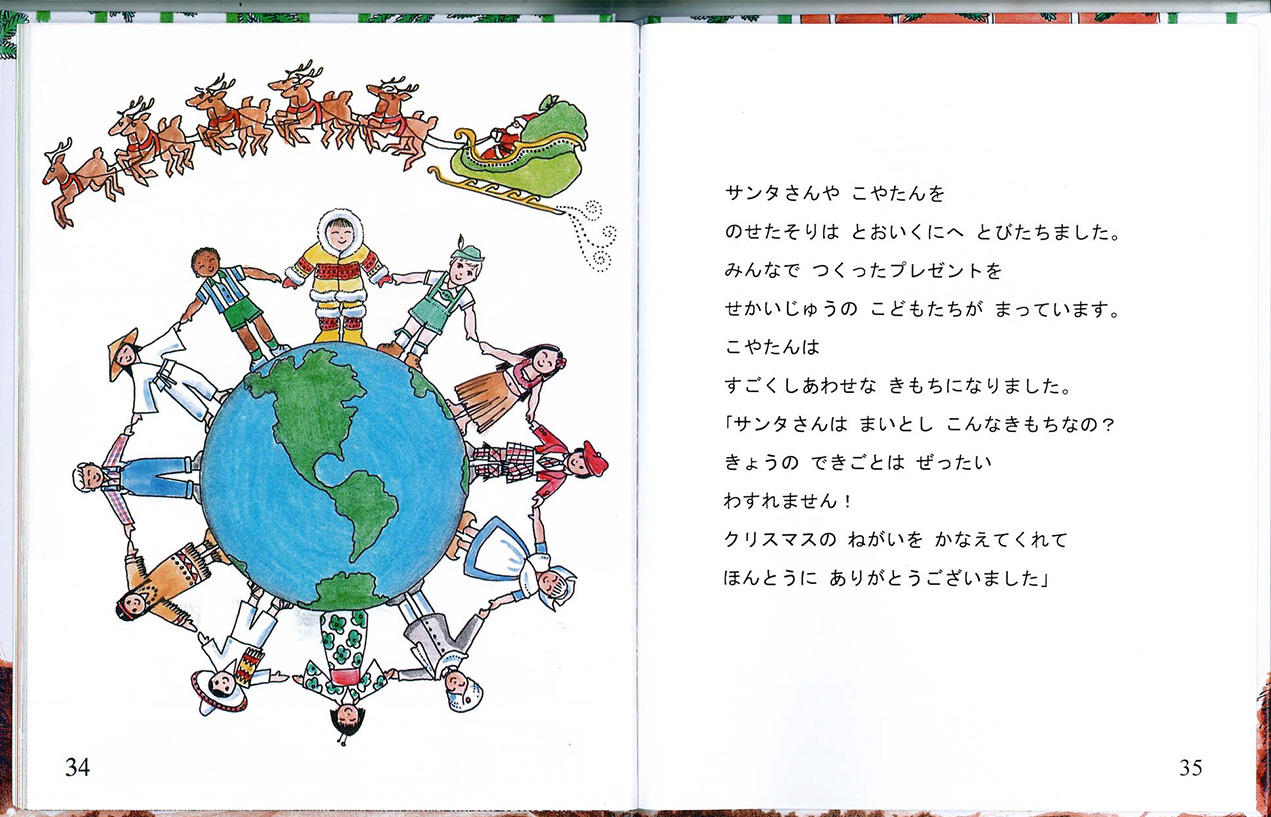 サンタさんや こやたんを
のせたそりは とおいくにへ とびたちました。
みんなで つくったプレゼントを
せかいじゅうの こどもたちが まっています。
こやたんは
すごくしあわせな きもちになりました。
「サンタさんは まいとし こんなきもちなの？
きょうの できごとは ぜったい
わすれません！
クリスマスの ねがいを かなえてくれて
ほんとうに ありがとうございました」
34
35